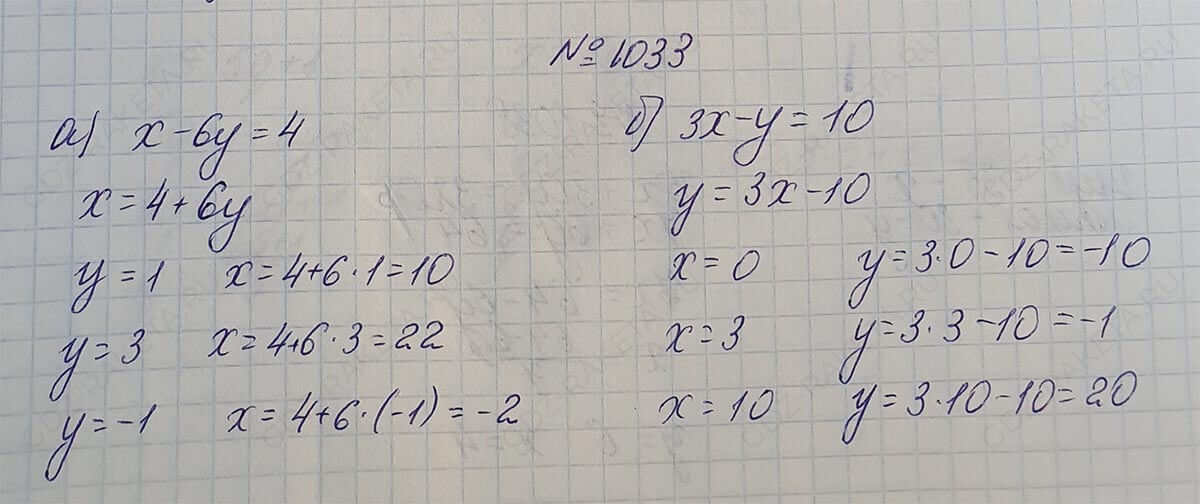 № 1033
а) x - 6y = 4
x = 4 + 6y
y = 1 x = 4 + 6 · 1 = 10
y = 3 x = 4 + 6 · 3 = 22
y = -1 x = 4 + 6 · (-1) = -2
б) 3x - y = 10
y = 3x - 10
x = 0 y = 3 · 0 - 10 = -10
x = 3 y = 3 · 3 - 10 = -1
x = 10 y = 3 · 10 - 10 = 20